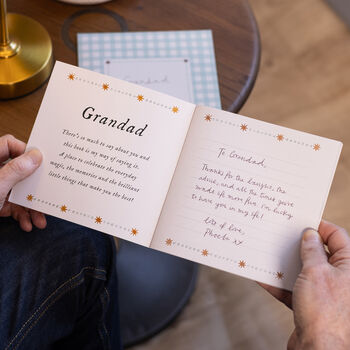 Grandad
Grandad
There's so much to say about you and
this book is my way of saying it.
A place to celebrate the everyday
magic, the memories and the brilliant
little things that make you the best!
To Grandad,
Thanks for the laughs, the
advice, and all the times you've
made life more fun. I'm lucky
to have you in my life!
Lots of love,
Phoebe xx